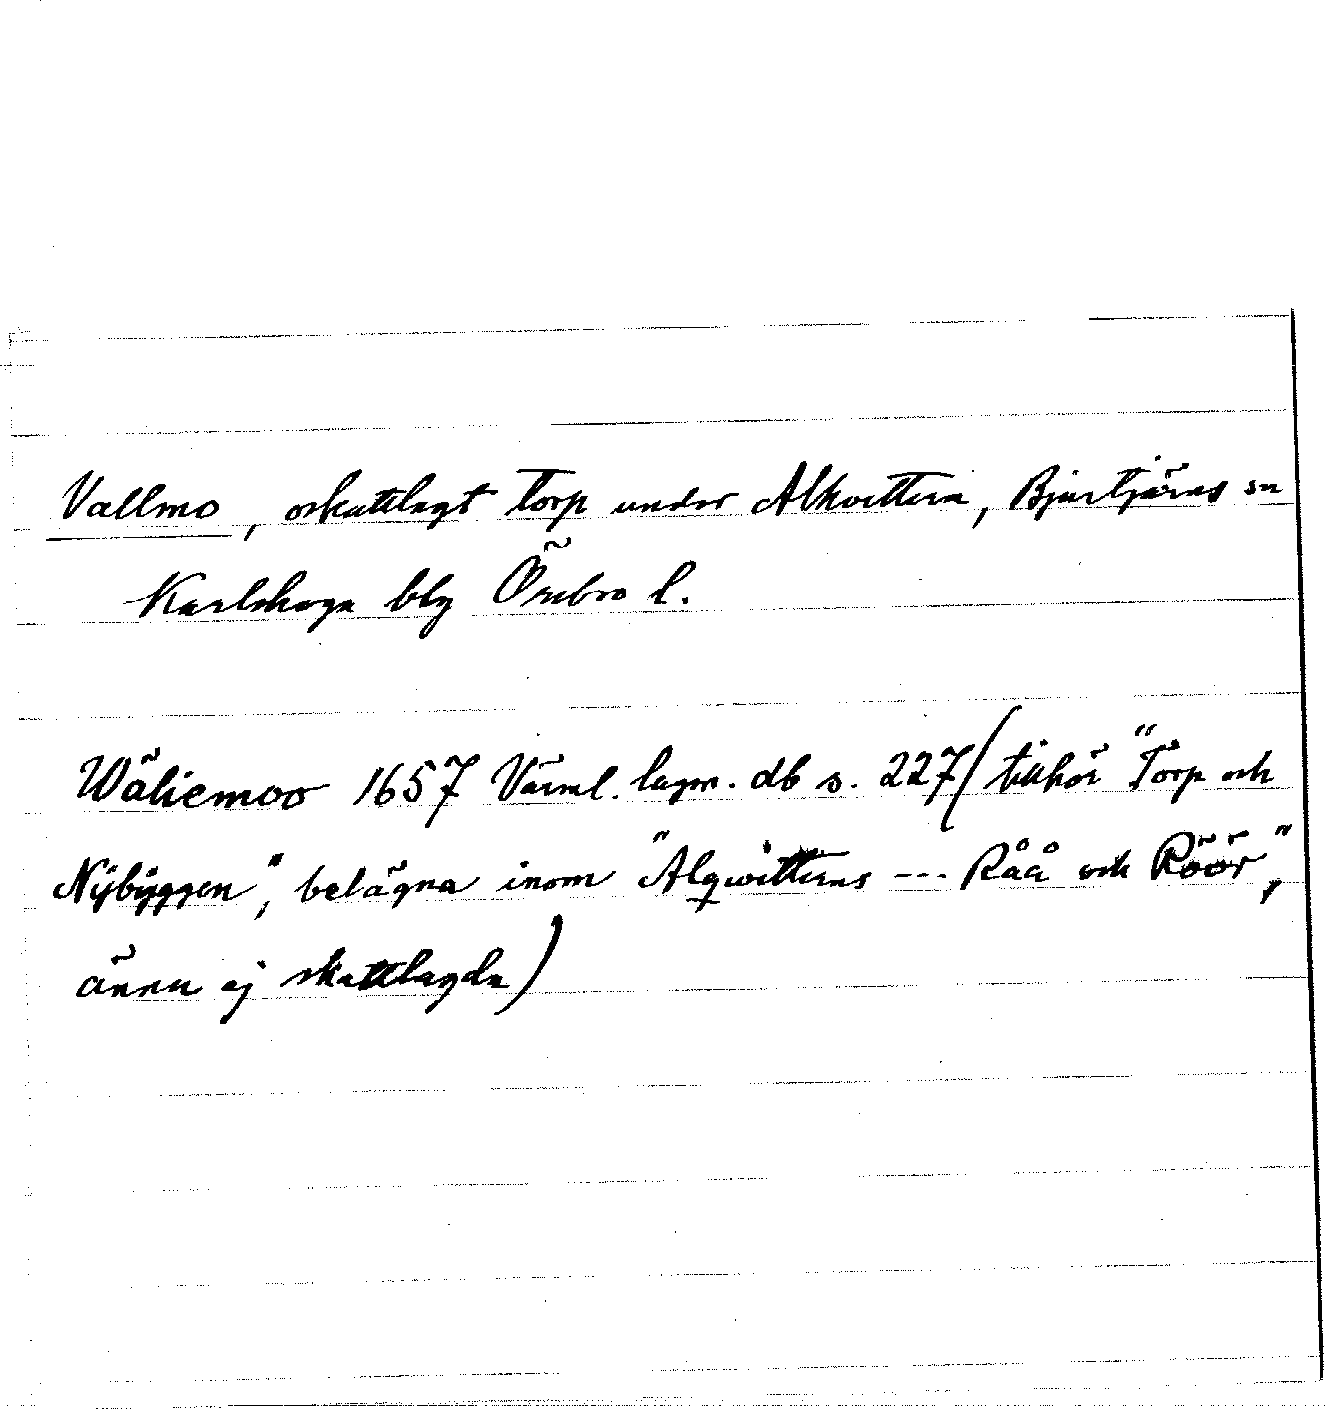 Vallmo, oskattlagt torp under Alkvettern, Bjurtjärns sn
Karlskoga blg Örebro l.
Wäliemoo 1657 Värml. lagm. db s. 227 (tillhör "Torp och
Nÿbÿggen", belägna inom "Alqwitterns --- Råå och Röör",
ännu ej skattlagda)